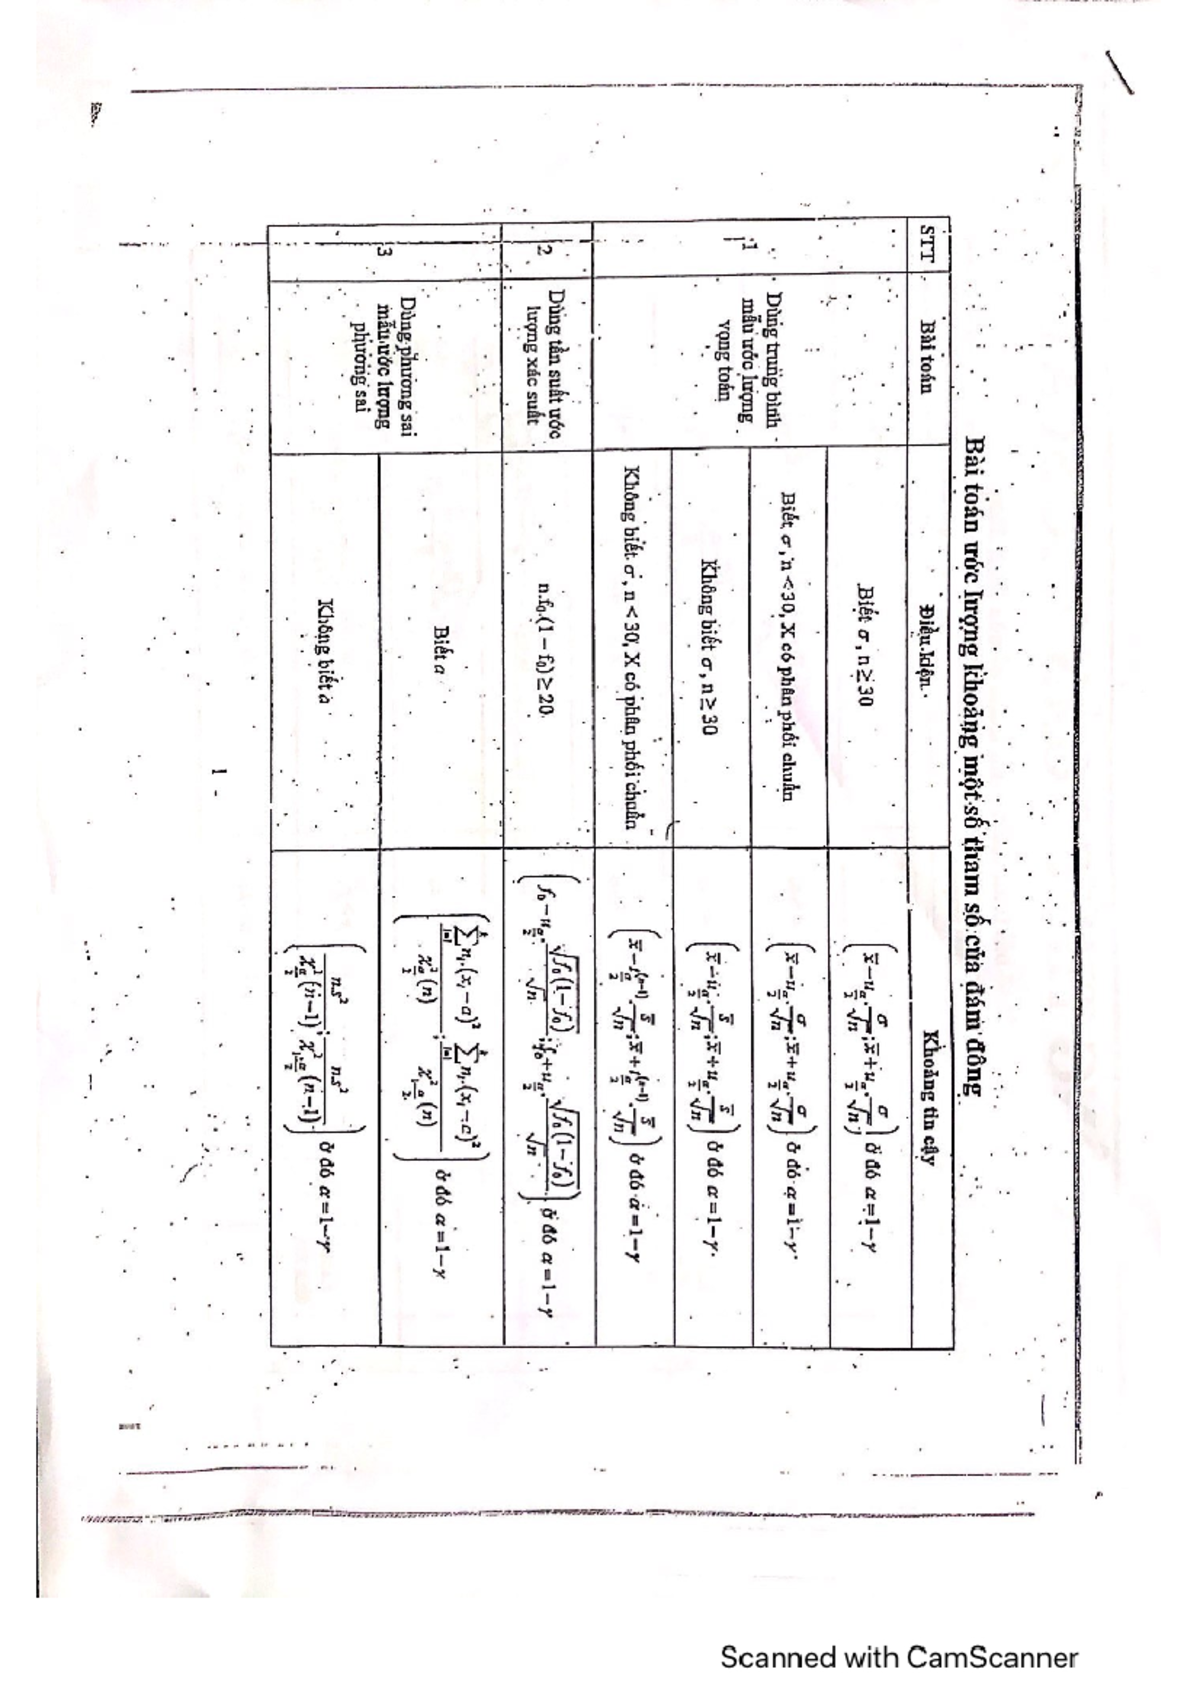 Bài toán ước lượng khoảng một số tham số của đám đông
STT
Bài toán
Điều kiện
Khoảng tin cậy
1
Dùng trung bình
mẫu ước lượng
vọng toán
Biết σ, n ≥ 30
(x̄ − u_{α/2}.σ/√n; x̄ + u_{α/2}.σ/√n) ở đó α = 1 − γ
Biết σ, n < 30, X có phân phối chuẩn
(x̄ − u_{α/2}.σ/√n; x̄ + u_{α/2}.σ/√n) ở đó α = 1 − γ
Không biết σ, n ≥ 30
(x̄ − u_{α/2}.s̄/√n; x̄ + u_{α/2}.s̄/√n) ở đó α = 1 − γ
Không biết σ, n < 30, X có phân phối chuẩn
(x̄ − t_{α/2}^{(n−1)}.s̄/√n; x̄ + t_{α/2}^{(n−1)}.s̄/√n) ở đó α = 1 − γ
2
Dùng tần suất ước
lượng xác suất
n.f₀.(1 − f₀) ≥ 20
(f₀ − u_{α/2}.√(f₀(1 − f₀))/√n; f₀ + u_{α/2}.√(f₀(1 − f₀))/√n) ở đó α = 1 − γ
3
Dùng phương sai
mẫu ước lượng
phương sai
Biết a
(∑_{i=1}^{k} n_i.(x_i − a)²/χ²_{α/2}(n); ∑_{i=1}^{k} n_i.(x_i − a)²/χ²_{1−α/2}(n)) ở đó α = 1 − γ
Không biết a
(n.s²/χ²_{α/2}(n−1); n.s²/χ²_{1−α/2}(n−1)) ở đó α = 1 − γ
1
Scanned with CamScanner